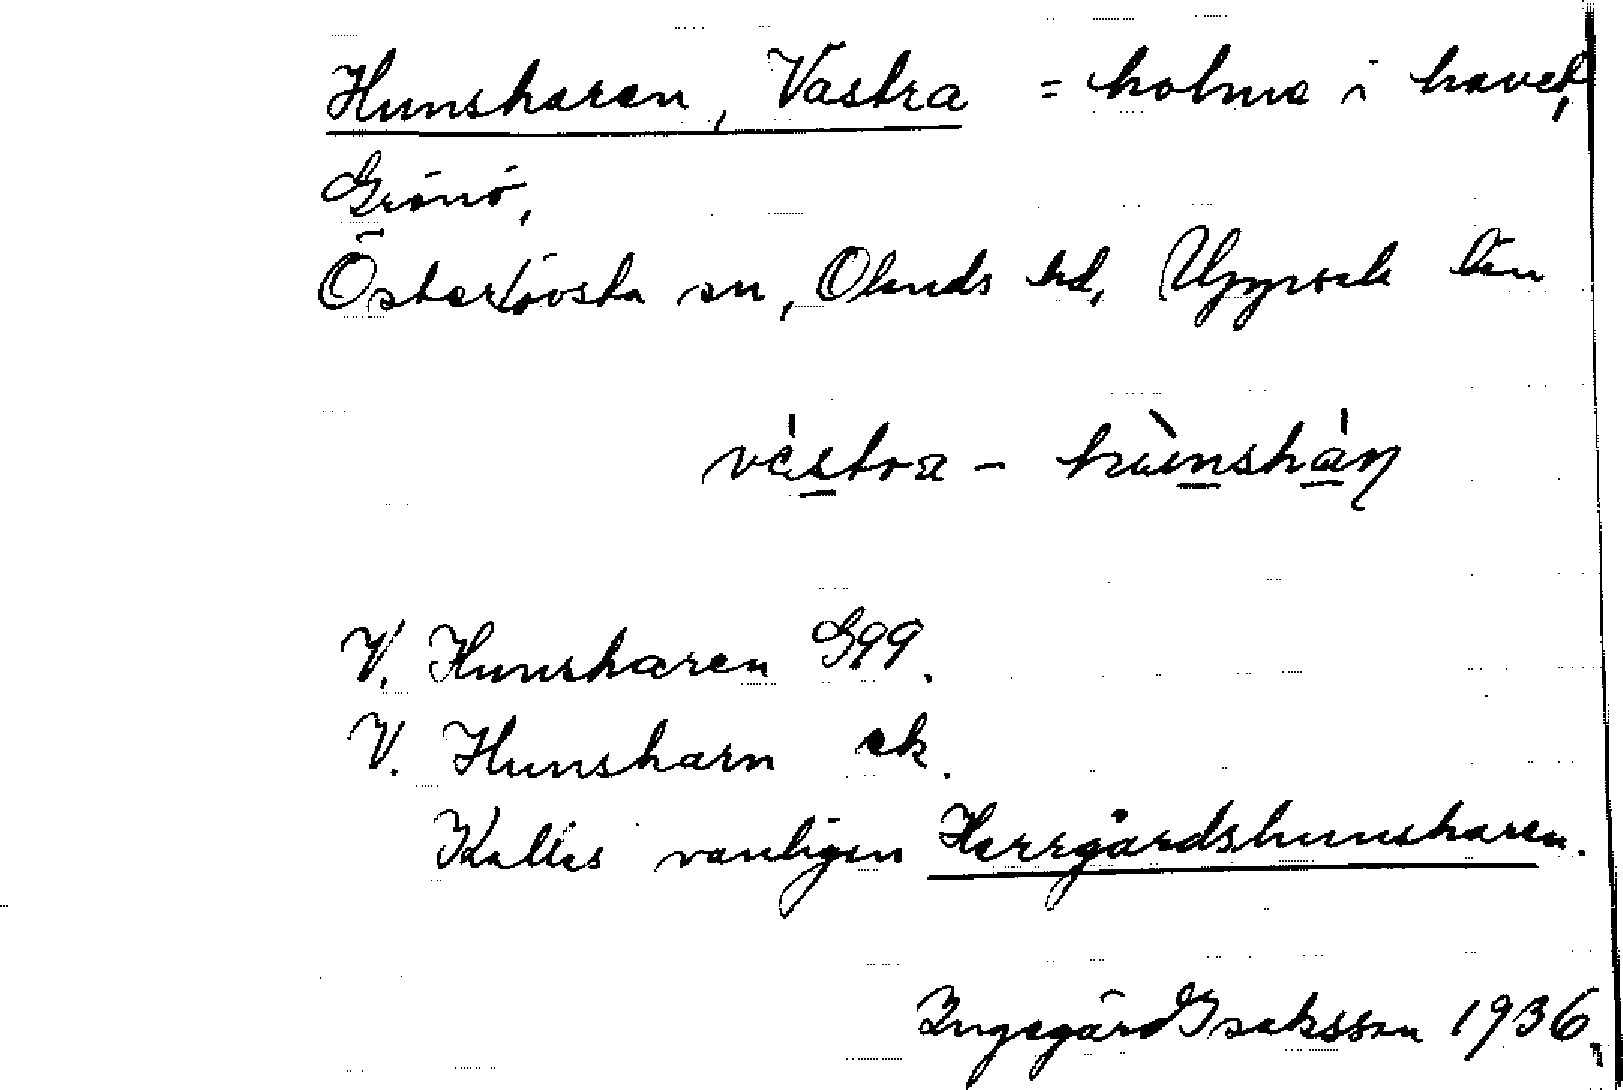 Hunsharen, Västra = holme i havet,
Gränö,
Österlövsta sn, Olands hd, Uppsala län
västra - hunshan
V. Hunsharen Ggg.
V. Hunsharn ek.
Kallas vanligen Herrgårdshunsharen.
Ingegärd Isaksson 1936.